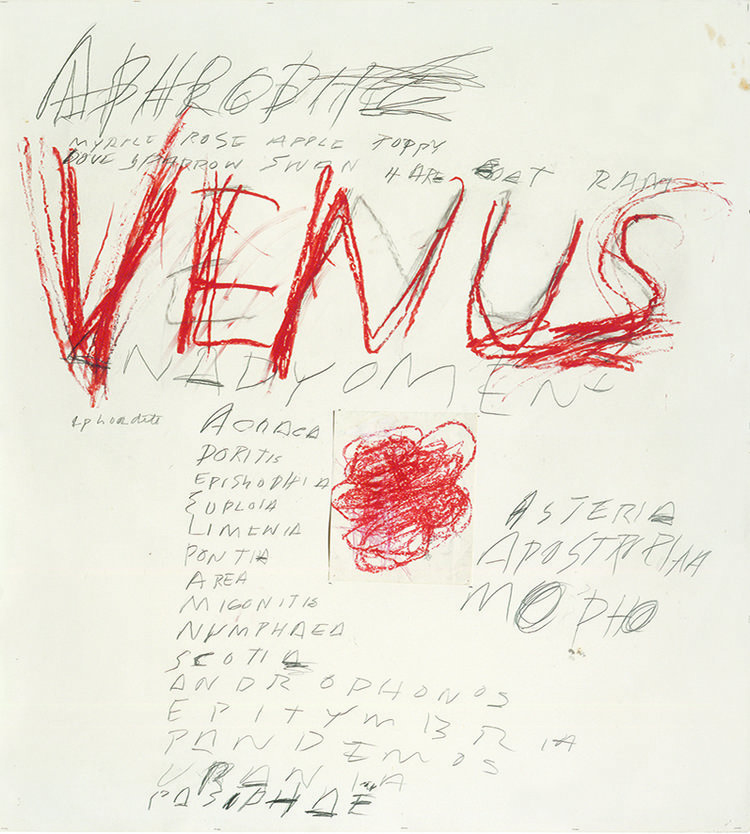 APHRODITE
MYRTLE ROSE APPLE POPPY
DOVE SPARROW SWAN HARE GOAT RAM
VENUS
ANADYOMENE
Aphrodite
ACRAEA
DORITIS
EPISKOPHIA
EUPLOIA
LIMENIA
PONTIA
AREA
MIGONITIS
NUMPHAEA
SCOTIA
ANDROPHONOS
EPITYMBRIA
PANDEMOS
URANIA
PASIPHAE
ASTERIA
APOSTROPHIA
MOPHO